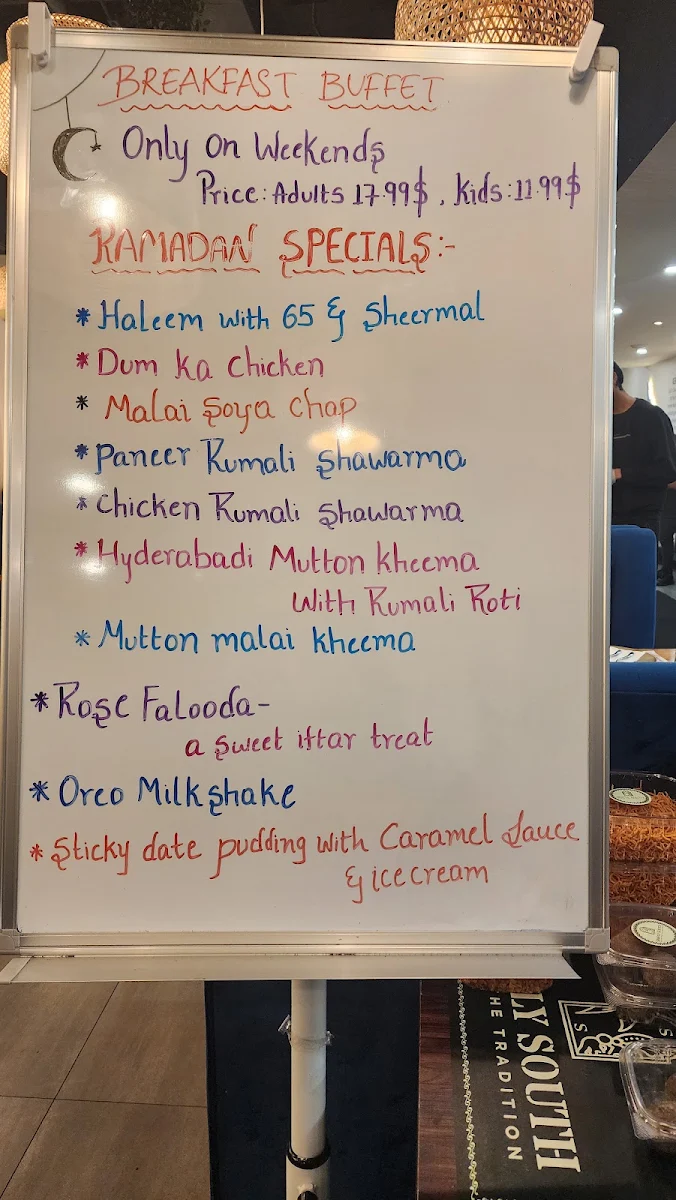 BREAKFAST BUFFET
Only on Weekends
Price: Adults 17.99$, Kids: 11.99$
RAMADAN SPECIALS:-
* Haleem with 65 & Sheermal
* Dum ka Chicken
* Malai Soya Chap
* Paneer Rumali Shawarma
* Chicken Rumali Shawarma
* Hyderabadi Mutton kheema
With Rumali Roti
* Mutton malai kheema
* Rose Falooda-
a sweet iftar treat
* Oreo Milkshake
* Sticky date pudding with Caramel Sauce
& icecream
LY SOUTH
HE TRADITION